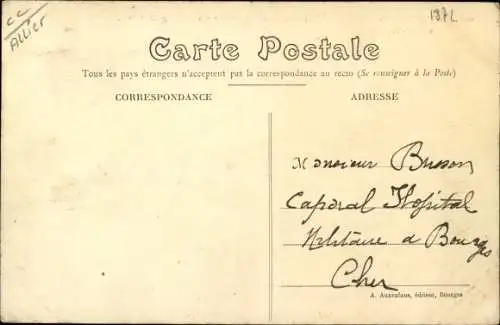 CC
Allier
137L
Carte Postale
Tous les pays étrangers n'acceptent pas la correspondance au recto (Se renseigner à la Poste)
CORRESPONDANCE
ADRESSE
Monsieur Busson
Caporal Hopital
Militaire a Bourges
Cher
A. Auxenfans, éditeur, Bourges